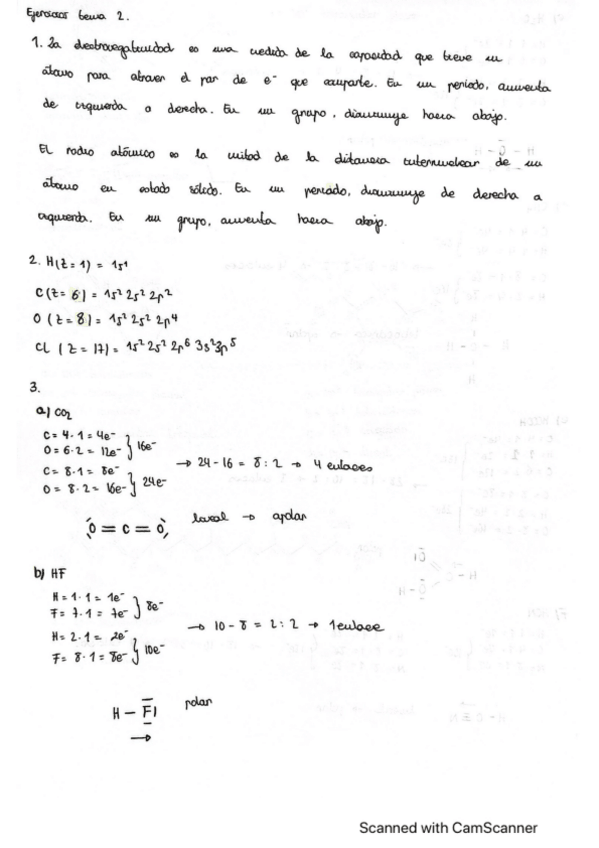 Ejercicios tema 2.
1. La electronegatividad es una medida de la capacidad que tiene un
átomo para atraer el par de e⁻ que comparte. En un periodo, aumenta
de izquierda a derecha. En un grupo, disminuye hacia abajo.
El radio atómico es la mitad de la distancia internuclear de un
átomo en estado sólido. En un periodo, disminuye de derecha a
izquierda. En un grupo, aumenta hacia abajo.
2. H(Z=1) = 1s¹
C(Z=6) = 1s² 2s² 2p²
O (Z=8) = 1s² 2s² 2p⁴
CL (Z=17) = 1s² 2s² 2p⁶ 3s² 3p⁵
3.
a) CO₂
C = 4·1 = 4e⁻
O = 6·2 = 12e⁻ } 16e⁻
C = 8·1 = 8e⁻
O = 8·2 = 16e⁻ } 24e⁻
→ 24-16 = 8:2 → 4 enlaces
O = C = O
lineal → apolar
b) HF
H = 1·1 = 1e⁻
F = 7·1 = 7e⁻ } 8e⁻
H = 2·1 = 2e⁻
F = 8·1 = 8e⁻ } 10e⁻
→ 10-8 = 2:2 → 1 enlace
H - F|
polar
→
Scanned with CamScanner